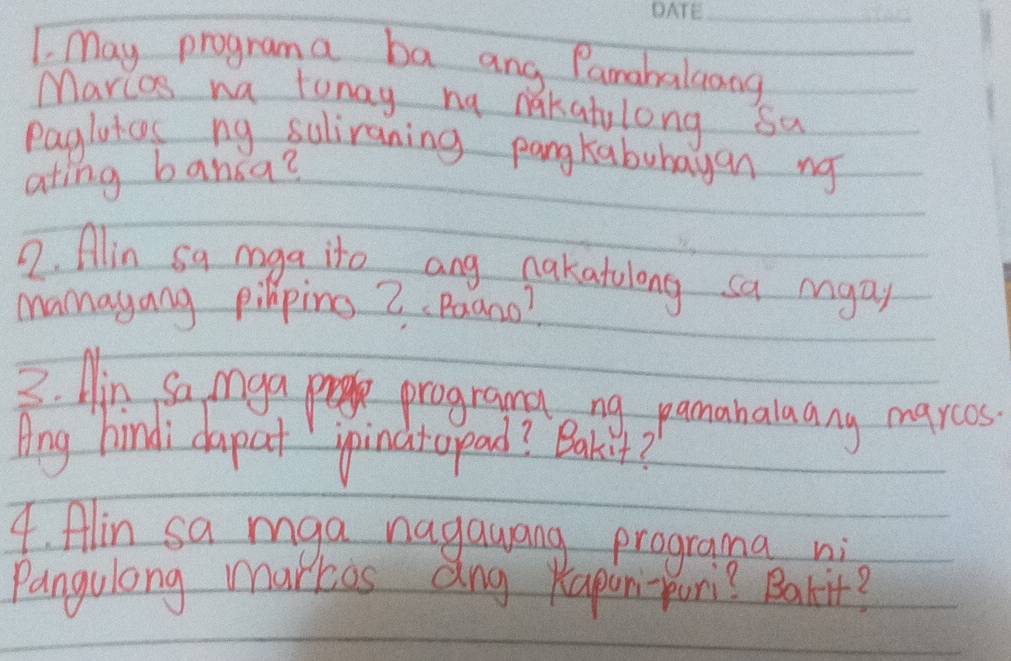 DATE
1. May programa ba ang Pamahalaang
Marcos na tunay na nakatulong sa
paglutas ng suliraning pangkabuhayan ng
ating bansa?
2. Alin sa mga ito ang nakatulong sa mga
mamayang pilipino? Paano?
3. Alin sa mga programa ng pamahalaang marcos.
Ang hindi dapat ipinatupad? Bakit?
4. Alin sa mga nagawang programa ni
Pangulong markos ang kapuri-puri? Bakit?